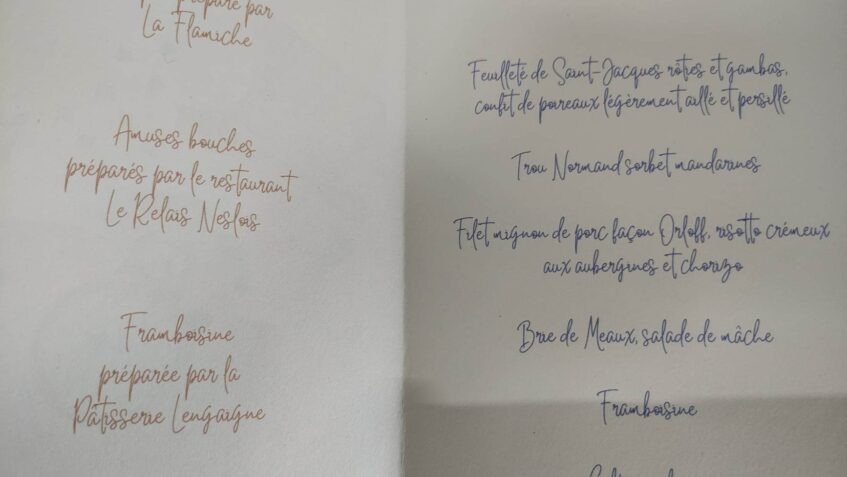 préparé par
La Flamiche
Amuses bouches
préparés par le restaurant
Le Relais Neslois
Framboisine
préparée par la
Pâtisserie Lengaigne
Feuilleté de Saint-Jacques rôties et gambas,
confit de poireaux légèrement aillé et persillé
Trou Normand sorbet mandarines
Filet mignon de porc façon Orloff, risotto crémeux
aux aubergines et chorizo
Brie de Meaux, salade de mâche
Framboisine